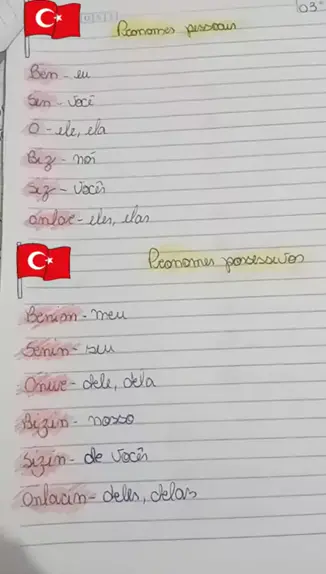 03
Pronomes pessoais
Ben - eu
Sen - você
O - ele, ela
Biz - nós
Siz - vocês
onlar - eles, elas
Pronomes possessivos
Benim - meu
Senin - seu
Onun - dele, dela
Bizin - nosso
Sizin - de vocês
Onların - deles, delas